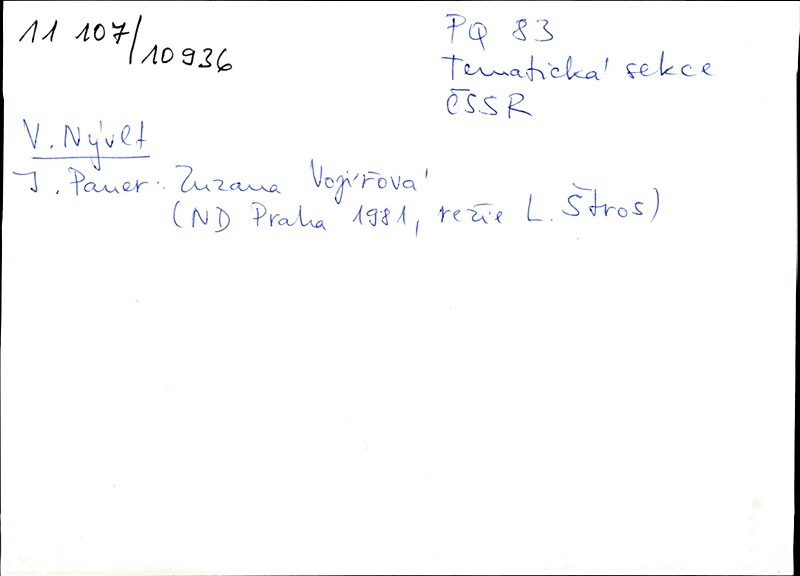 11 107/10936
PQ 83
Tematická sekce
ČSSR
V. Nývlt
J. Pauer: Zuzana Vojířová
(ND Praha 1981, režie L. Štros)